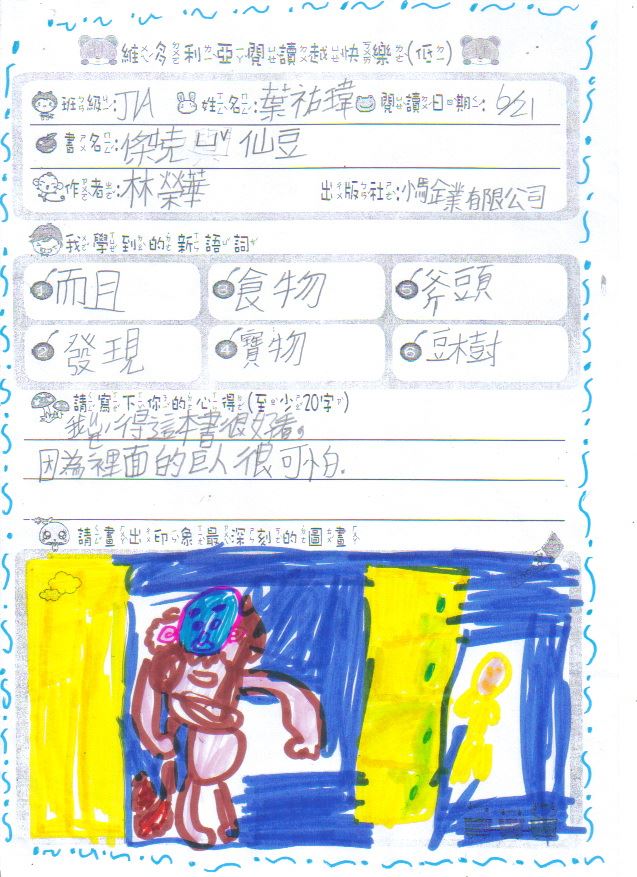 維多利亞閱讀越快樂(低)
班級:J1A 姓名:葉祐瑋 閱讀日期:6/21
書名:傑克與仙豆
作者:林榮華 出版社:小馬企業有限公司
我學到的新語詞
1 而且 3 食物 5 斧頭
2 發現 4 寶物 6 豆樹
請寫下你的心得(至少20字)
我ㄐㄩㄝˊ得這本書很好看。
因為裡面的巨人很可怕.
請畫出印象最深刻的圖畫